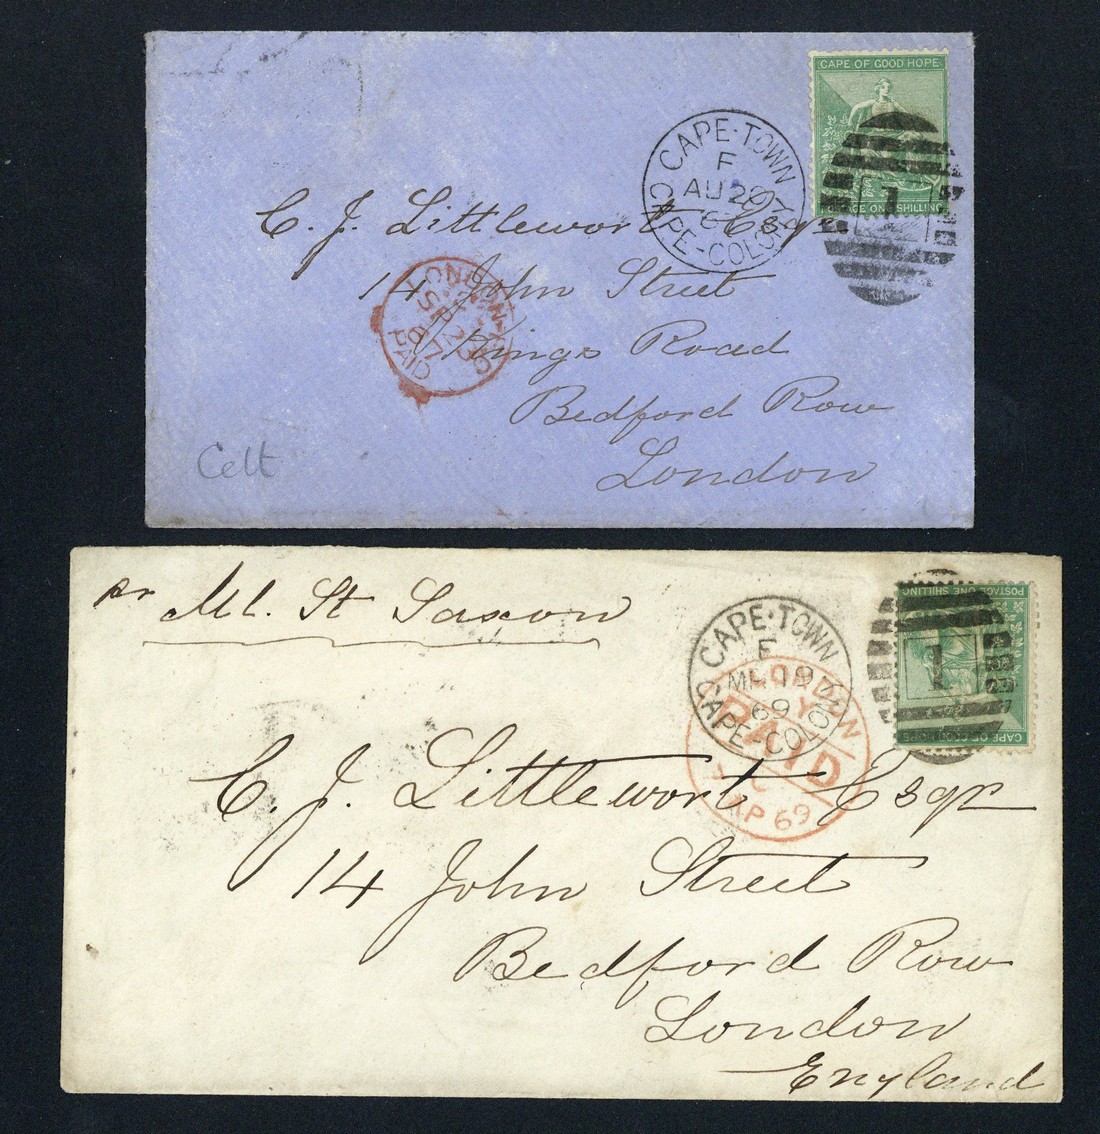 CAPE OF GOOD HOPE
POSTAGE ONE SHILLING
CAPE·TOWN
F
AU 20
67
CAPE-COLONY
1
C. J. Littlewort Esqr
14 John Street
Kings Road
Bedford Row
London
LONDON
SP 2
67
PAID
Celt
pr Ml. St Saxon
POSTAGE ONE SHILLING
CAPE OF GOOD HOPE
1
CAPE·TOWN
F
MR 19
69
CAPE-COLONY
LONDON
PAID
AP 69
C. J. Littlewort Esqr
14 John Street
Bedford Row
London
England